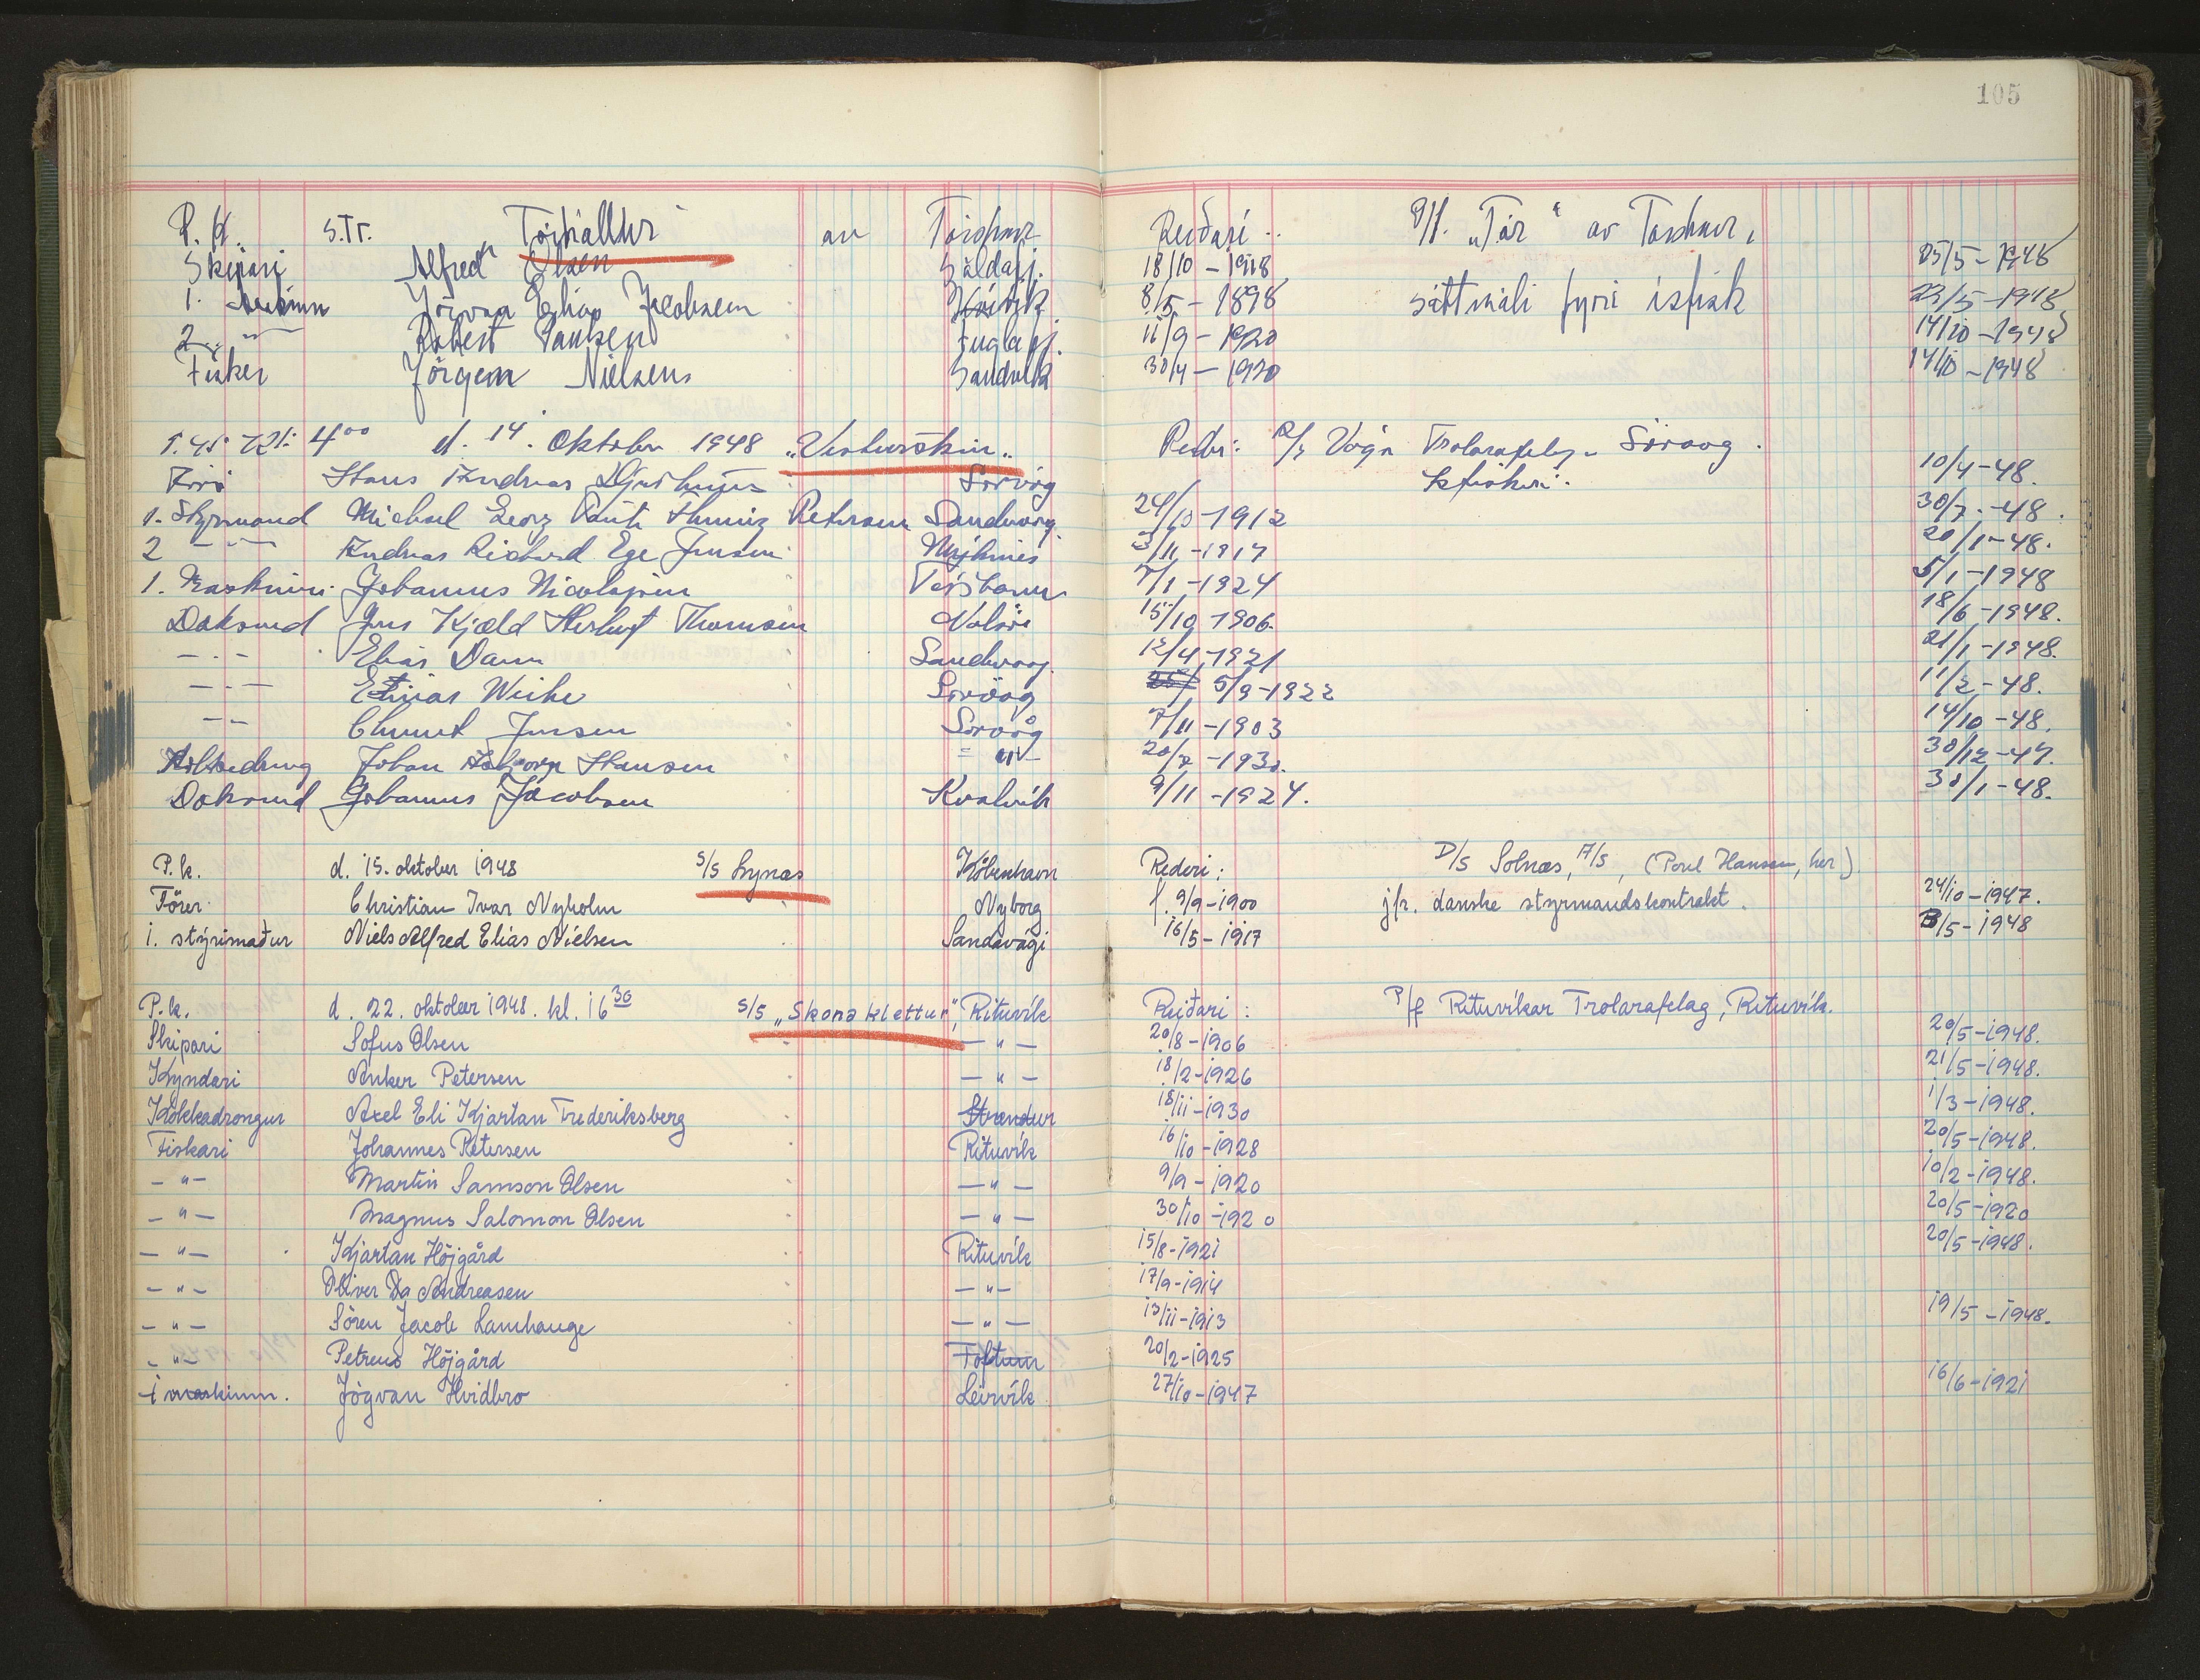 105
P. k. S.Tr. Tórhallur av Tórshavn Reiðari P/f. „Tór“ av Torshavn,
Skipari Alfred Olsen Saldarfj. 18/10 - 1918 25/5 - 1948
1. Jógvan Elias Jacobsen 8/5 - 1898 sáttmáli fyri ísfisk 22/5 - 1948
2. -"- Robert Paulsen Fuglafj. 11/9 - 1920 14/10 - 1948
Fisker Jörgen Nielsen Sandvík 30/4 - 1920 14/10 - 1948
4⁰⁰ d. 14. Oktober 1948 „Vesturskin„ Reder: Vága Trolarafelag Sörvaag.
Hans Andreas Sörvág 10/4-48.
1. Styrmand Michael Georg Petersen Sandvaag. 24/10-1912 30/7.-48.
2 -"- Andreas Richard Ege Jensen Mykines 3/11-1917 20/1-48.
1. Johannes Nicolajsen Torshavn 7/1-1924 5/1-1948
Doksmd Jens Kjæld Herluf Thomsen 15/10-1906. 18/6-1948.
-"- Elias Dam Sandvaag. 12/4-1921 21/1-1948.
-"- Elias Weihe Sörvaag 5/9-1922 11/2-48.
-"- Clement Jensen Sörvåg 7/11-1903 14/10-48.
Kokkedreng Johan Hansen -"- 20/7-1930. 30/12-47.
Doksmd Johannes Jacobsen Kvalvik 9/11-1924. 30/1-48.
P.k. d. 15. oktober 1948 S/S Lynæs Köbenhavn Rederi: D/S Solnæs, A/S, (Poul Hansen, her)
Förer Christian Ivar Nyholm Nyborg f. 9/9-1900 jfr. danske styrmandskontrakt. 24/10-1947.
1. stýrimaður Niels Alfred Elias Nielsen Sandavági 16/5-1917 3/5-1948
P.k. d. 22. oktober 1948. kl. 16³⁰ S/S „Skoraklettur“, Rituvík Reiðari: P/f Rituvíkar Trolarafelag, Rituvík.
Skipari Sofus Olsen -"- 20/8-1906 20/5-1948.
Kyndari Anker Petersen -"- 18/2-1926 21/5-1948.
Kokkadrongur Axel Eli Kjartan Frederiksberg Strendur 18/11-1930 1/3-1948.
Fiskari Johannes Petersen Rituvík 16/10-1928 20/5-1948.
-"- Martin Samson Olsen -"- 9/9-1920 10/2-1948.
-"- Magnus Salomon Olsen -"- 30/10-1920 20/5-1920
-"- Kjartan Höjgård Rituvík 15/8-1921 20/5-1948.
-"- Oliver Da Andreasen -"- 17/9-1914
-"- Sören Jacob Lamhauge -"- 13/11-1913 19/5-1948.
-"- Petreus Höjgård Toftum 20/2-1925
1 maskinm. Jógvan Hvidbro Leirvík 27/10-1947 16/6-1921